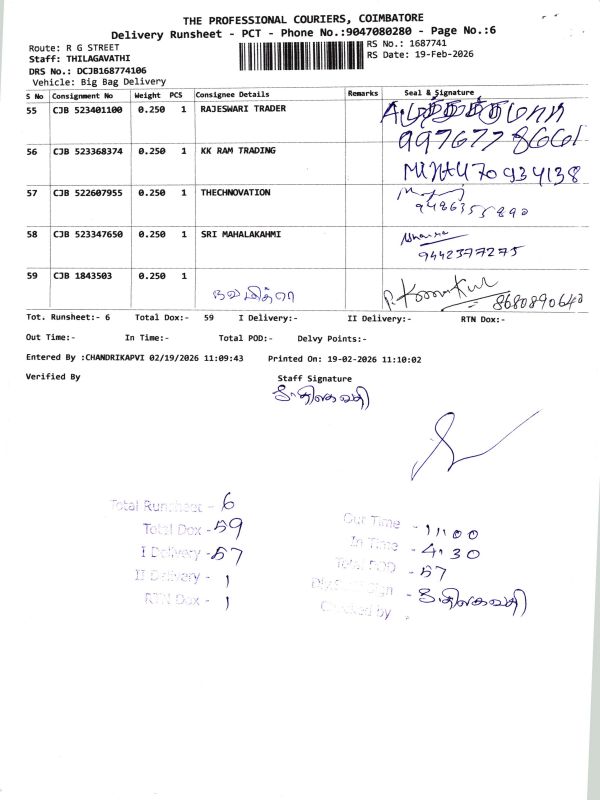 THE PROFESSIONAL COURIERS, COIMBATORE
Delivery Runsheet - PCT - Phone No.:9047080280 - Page No.:6
Route: R G STREET
RS No.: 1687741
Staff: THILAGAVATHI
RS Date: 19-Feb-2026
DRS No.: DCJB168774106
Vehicle: Big Bag Delivery
S No Consignment No Weight PCS Consignee Details Remarks Seal & Signature
55 CJB 523401100 0.250 1 RAJESWARI TRADER
9976778661
56 CJB 523368374 0.250 1 KK RAM TRADING
57 CJB 522607955 0.250 1 THECHNOVATION
9486355890
58 CJB 523347650 0.250 1 SRI MAHALAKAHMI
9442377275
59 CJB 1843503 0.250 1
நவமித்ரா
8680890640
Tot. Runsheet:- 6 Total Dox:- 59 I Delivery:- II Delivery:- RTN Dox:-
Out Time:- In Time:- Total POD:- Delvy Points:-
Entered By :CHANDRIKAPVI 02/19/2026 11:09:43 Printed On: 19-02-2026 11:10:02
Verified By Staff Signature
த.திலகவதி
Total Runsheet - 6
Total Dox - 59
I Delivery - 57
II Delivery - 1
RTN Dox - 1
Out Time - 11.00
In Time - 4.30
Total POD - 57
Sign - த.திலகவதி
Checked by